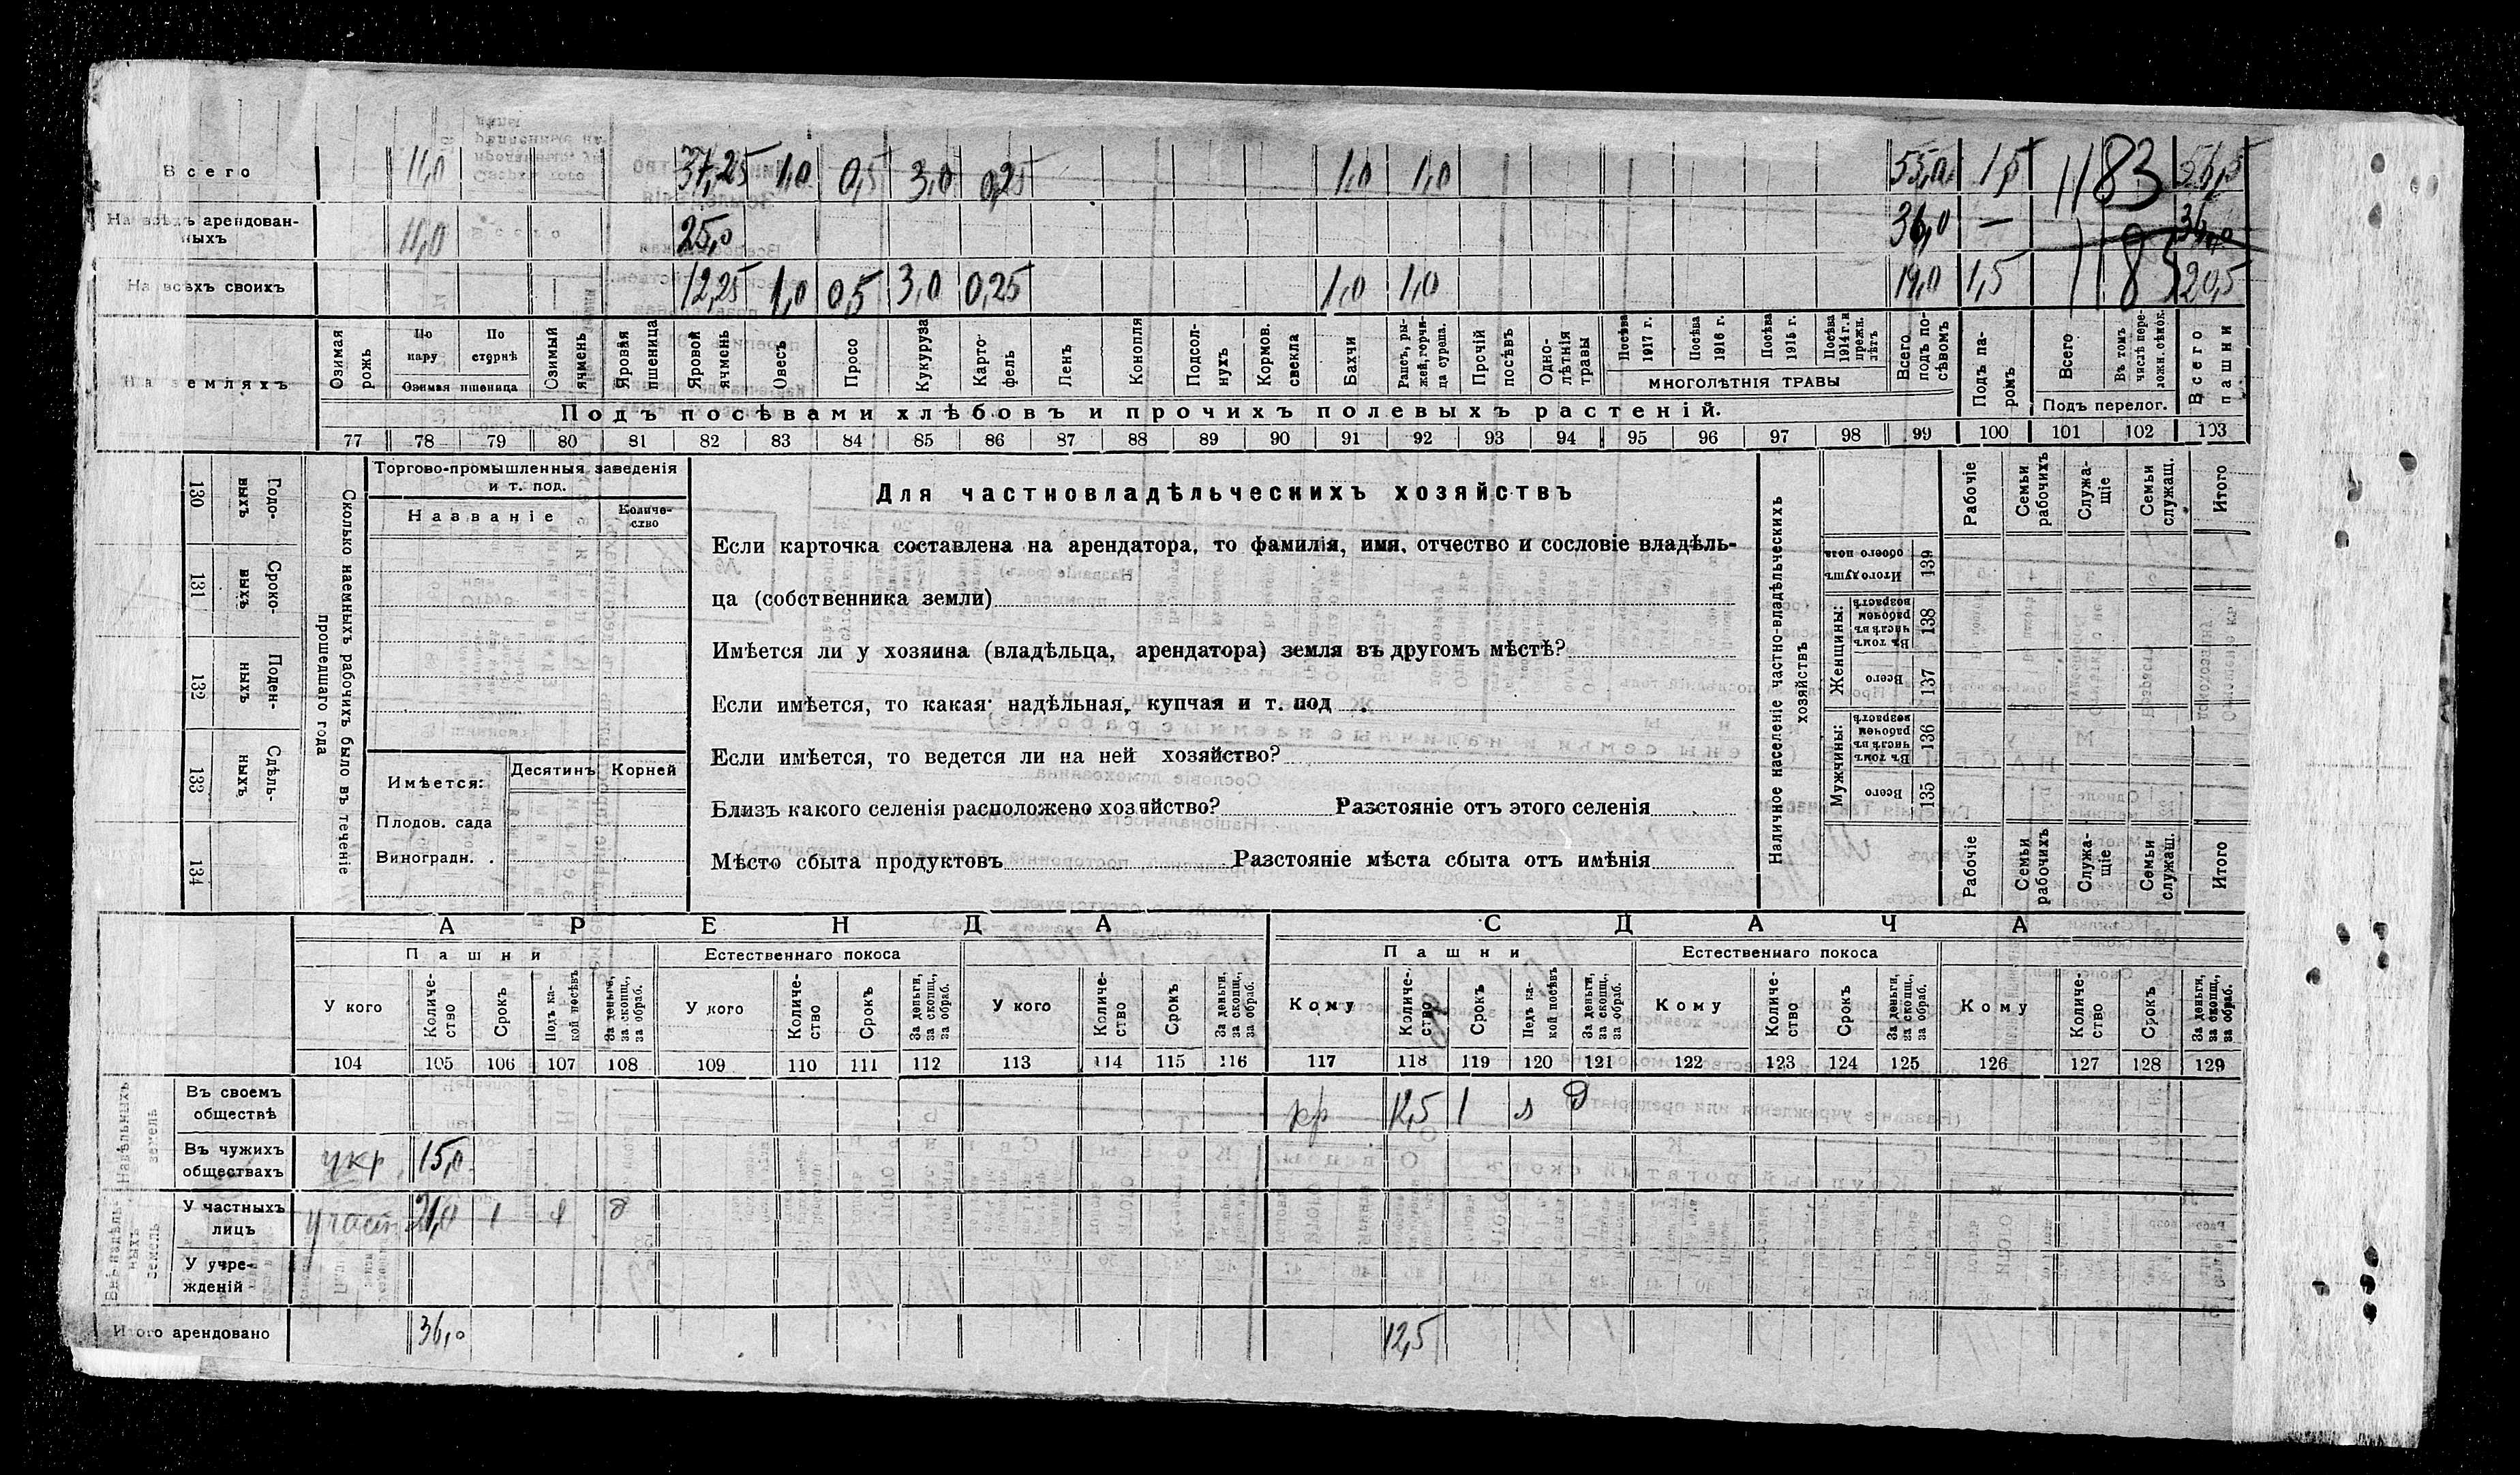 Всего 11,0 37,25 1,0 0,5 3,0 0,25 1,0 1,0 55,0 1,5 1183 56,5
На всѣхъ арендованныхъ 11,0 25,0 36,0 — 36,0
На всѣхъ своихъ — 12,25 1,0 0,5 3,0 0,25 1,0 1,0 19,0 1,5 1185 20,5
На земляхъ
Озимая рожь
По пару
По стернѣ
Озимая пшеница
Озимый ячмень
Яровая пшеница
Яровой ячмень
Овесъ
Просо
Кукуруза
Картофель
Ленъ
Конопля
Подсолнухъ
Кормов. свекла
Бахчи
Рапсъ, рыжей, горчица сурепа.
Прочій посѣвъ
Однолѣтнія травы
Посѣва 1917 г.
Посѣва 1916 г.
Посѣва 1915 г.
Посѣва 1914 г. и прежн. лѣтъ
МНОГОЛѢТНІЯ ТРАВЫ
Всего подъ посѣвомъ
Подъ паромъ
Всего
Въ томъ числѣ переложн. сѣнок.
Подъ перелог.
Всего пашни
Подъ посѣвами хлѣбовъ и прочихъ полевыхъ растеній.
77 78 79 80 81 82 83 84 85 86 87 88 89 90 91 92 93 94 95 96 97 98 99 100 101 102 103
130 Годовыхъ
131 Сроковыхъ
132 Поденныхъ
133 Сдѣльныхъ
134
Сколько наемныхъ рабочихъ было въ теченіе прошедшаго года
Торгово-промышленныя заведенія
и т. под.
Названіе
Количество
Имѣется:
Десятинъ Корней
Плодов. сада
Виноградн. .
Для частновладѣльческихъ хозяйствъ
Если карточка составлена на арендатора, то фамилія, имя, отчество и сословіе владѣль-
ца (собственника земли)
Имѣется ли у хозяина (владѣльца, арендатора) земля въ другомъ мѣстѣ?
Если имѣется, то какая: надѣльная, купчая и т. под
Если имѣется, то ведется ли на ней хозяйство?
Близъ какого селенія расположено хозяйство? Разстояніе отъ этого селенія
Мѣсто сбыта продуктовъ Разстояніе мѣста сбыта отъ имѣнія
Наличное населеніе частно-владѣльческихъ хозяйствъ
Рабочіе
Семьи рабочихъ
Служащіе
Семьи служащ.
Итого
Итого душъ обоего пола 139
Женщины:
Въ томъ числѣ въ рабочемъ возрастѣ 138
Всего 137
Мужчины:
Въ томъ числѣ въ рабочемъ возрастѣ 136
Всего 135
Рабочіе
Семьи рабочихъ
Служащіе
Семьи служащ.
Итого
АРЕНДА СДАЧА
Пашни Естественнаго покоса Пашни Естественнаго покоса
У кого Количество Срокъ Подъ какой посѣвъ За деньги, за скопщ., за обраб.
У кого Количество Срокъ За деньги, за скопщ., за обраб.
У кого Количество Срокъ За деньги, за скопщ., за обраб.
Кому Количество Срокъ Подъ какой посѣвъ За деньги, за скопщ., за обраб.
Кому Количество Срокъ За деньги, за скопщ., за обраб.
Кому Количество Срокъ За деньги, за скопщ., за обраб.
104 105 106 107 108 109 110 111 112 113 114 115 116 117 118 119 120 121 122 123 124 125 126 127 128 129
Надѣльныхъ земель
Въ своемъ обществѣ кр 12,5 1 я д
Въ чужихъ обществахъ укр. 15,0
Внѣнадѣльныхъ земель
У частныхъ лицъ участ 21,0 1 я д
У учрежденій
Итого арендовано 36,0 12,5